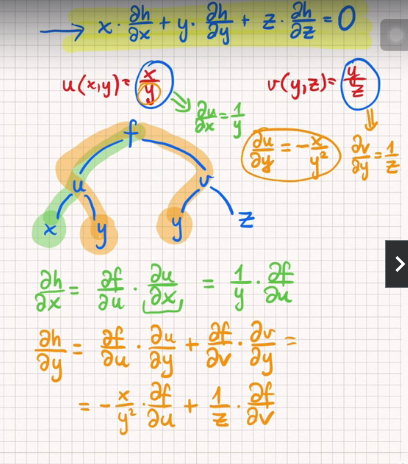 → x · ∂h/∂x + y · ∂h/∂y + z · ∂h/∂z = 0
u(x,y) = x/y
v(y,z) = y/z
∂u/∂x = 1/y
∂u/∂y = -x/y²
∂v/∂y = 1/z
f
u v
x y y z
∂h/∂x = ∂f/∂u · ∂u/∂x = 1/y · ∂f/∂u
∂h/∂y = ∂f/∂u · ∂u/∂y + ∂f/∂v · ∂v/∂y =
= -x/y² · ∂f/∂u + 1/z · ∂f/∂v